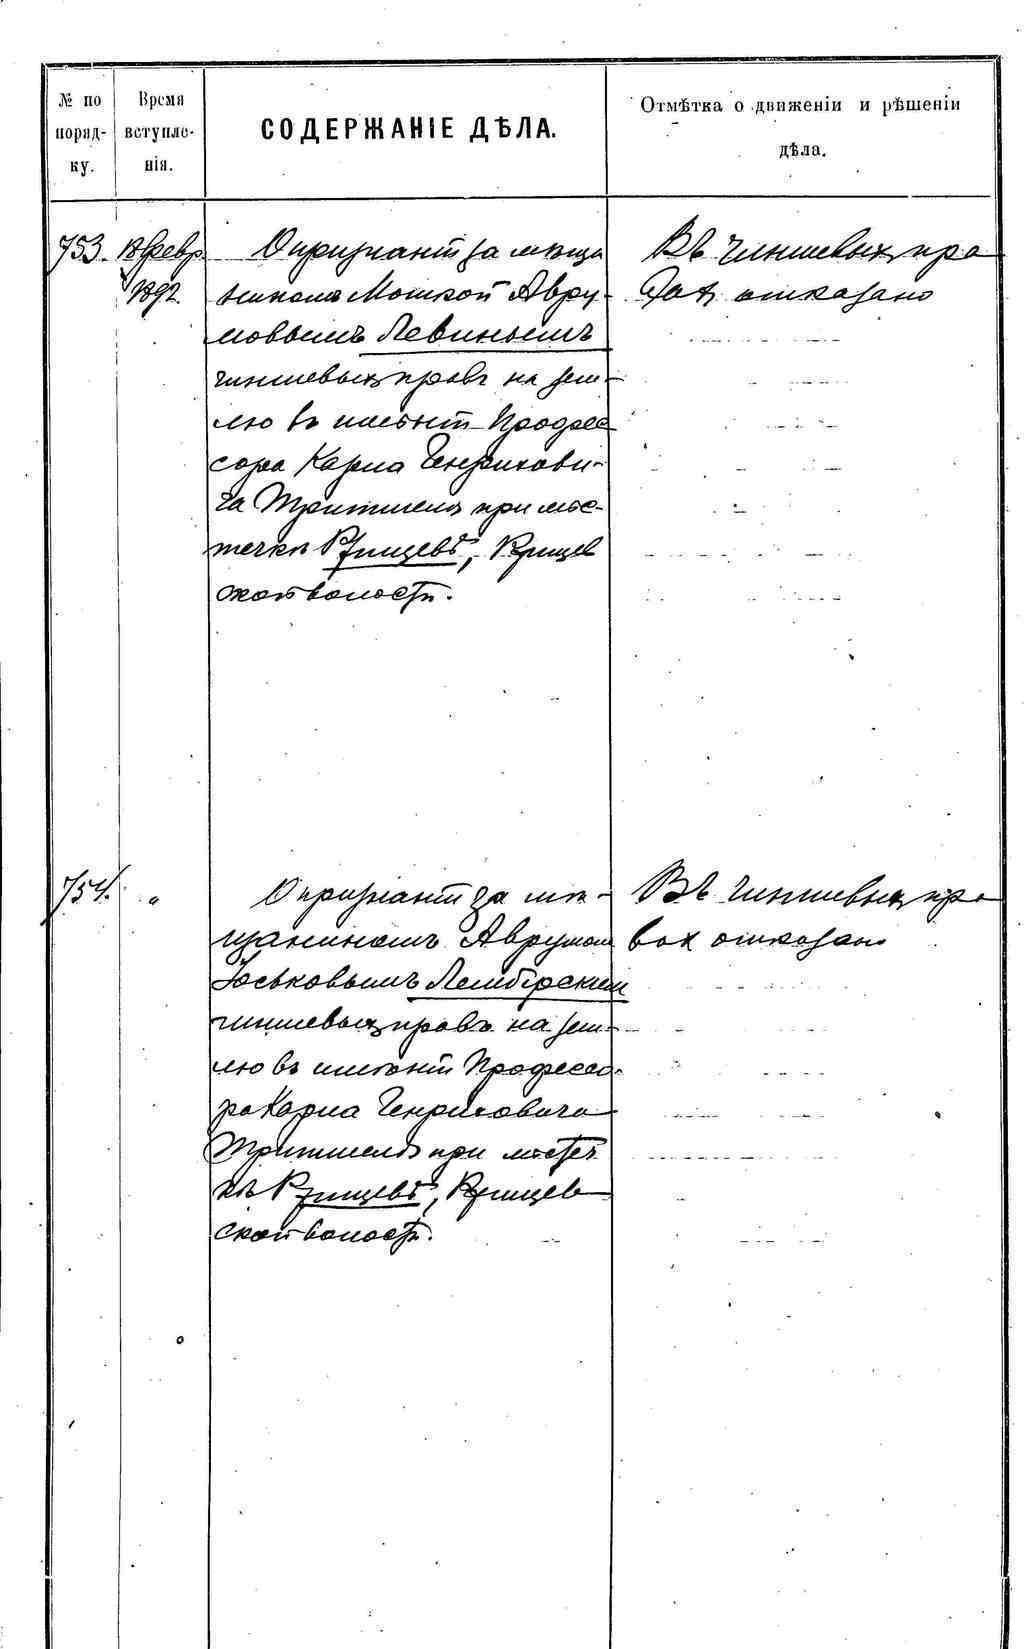 № по порядку.
Время вступленія.
СОДЕРЖАНІЕ ДѢЛА.
Отмѣтка о движеніи и рѣшеніи
дѣла.
753.
18 февр.
1892
О признаніи за мѣща
ниномъ Мошкой Авру-
мовымъ Левинымъ
чиншевыхъ правъ на зем-
лю въ имѣніи Професс
сора Карла Генрихови-
ча Тритшеля при мѣс-
течкѣ Ржищевѣ, Ржищев
ской волости.
Въ чиншевыхъ пра
вахъ отказано
754.
"
О признаніи за мѣ-
щаниномъ Аврумом
Иоськовымъ Лембгрским
чиншевыхъ правъ на зем-
лю въ имѣніи Професcо-
ра Карла Генриховича
Тритшеля при мѣстеч
кѣ Ржищевѣ, Ржищев
ской волости.
Въ чиншевыхъ пра
вах отказано